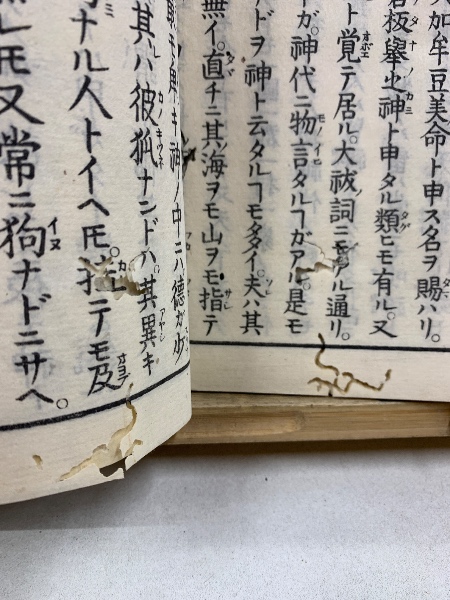 加牟豆美命ト申ス名ヲ賜ハリ。
板擧之神ト申タル類ヒモ有ル。又
ト覚テ居ル。大祓詞ニモアル通リ。
ガ。神代ニ物言タルヿガアル。是モ
ドヲ神ト云タルヿモ多イ。夫ハ其
無イ。直チニ其海ヲモ山ヲモ指テ
キ神ノ中ニハ德ガ少
其ハ彼狐ナンドハ。其異キ
ナル人トイヘ𪜈。テモ及
𪜈又常ニ狗ナドニサヘ。